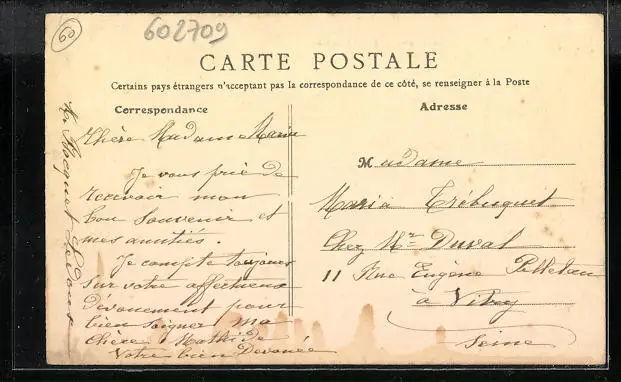 60
602709
CARTE POSTALE
Certains pays étrangers n'acceptant pas la correspondance de ce côté, se renseigner à la Poste
Correspondance
Adresse
Chère Madame Maria
Je vous prie de
recevoir mon
bon souvenir et
mes amitiés.
Je compte toujours
sur votre affectueux
dévouement pour
bien soigner ma
chère Mathilde
Votre bien Dévouée
Madame
Maria Trébuquet
Chez Mr Duval
11 Rue Eugène Pelletan
à Vitry
Seine